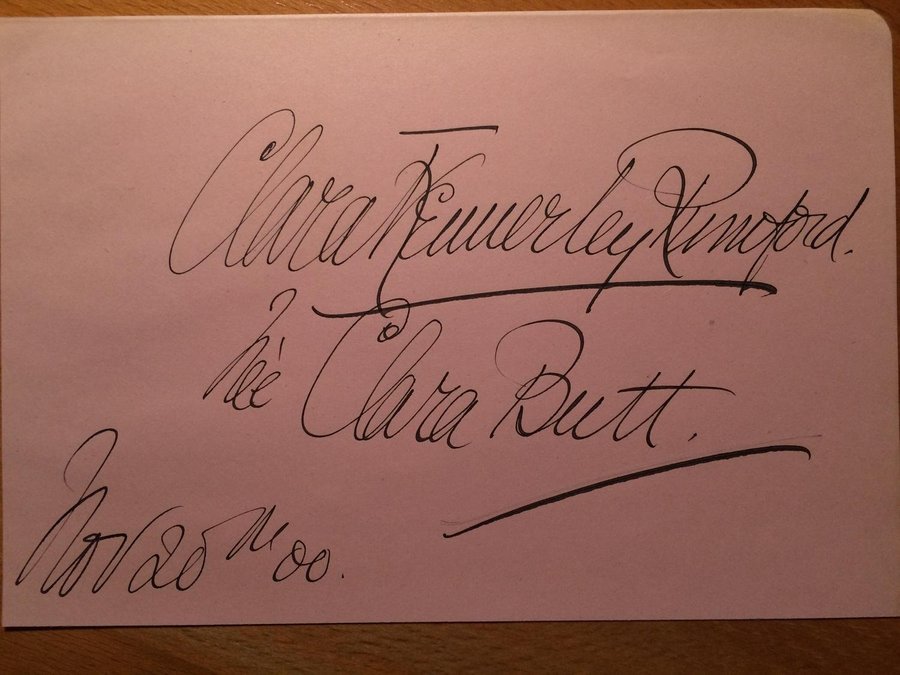 Clara Kennerley Rumford.
née Clara Butt.
Nov 20th 00.